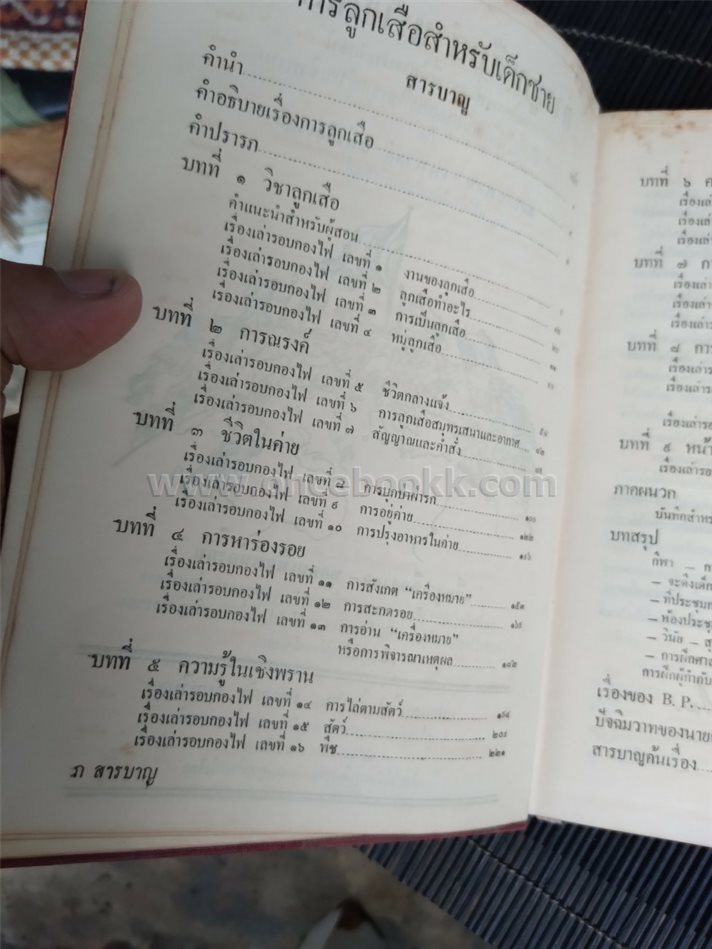 การลูกเสือสำหรับเด็กชาย
สารบาญ
คำนำ
คำอธิบายเรื่องการลูกเสือ
คำปรารภ
บทที่ ๑ วิชาลูกเสือ
คำแนะนำสำหรับผู้สอน
เรื่องเล่ารอบกองไฟ เลขที่ ๑ งานของลูกเสือ
เรื่องเล่ารอบกองไฟ เลขที่ ๒ ลูกเสือทำอะไร
เรื่องเล่ารอบกองไฟ เลขที่ ๓ การเป็นลูกเสือ
เรื่องเล่ารอบกองไฟ เลขที่ ๔ หมู่ลูกเสือ
บทที่ ๒ การณรงค์
เรื่องเล่ารอบกองไฟ เลขที่ ๕ ชีวิตกลางแจ้ง
เรื่องเล่ารอบกองไฟ เลขที่ ๖ การลูกเสือสมุทรเสนาและอากาศ
เรื่องเล่ารอบกองไฟ เลขที่ ๗ สัญญาณและคำสั่ง
บทที่ ๓ ชีวิตในค่าย
เรื่องเล่ารอบกองไฟ เลขที่ ๘ การบุกเบิก
เรื่องเล่ารอบกองไฟ เลขที่ ๙ การอยู่ค่าย ๑๒๒
เรื่องเล่ารอบกองไฟ เลขที่ ๑๐ การปรุงอาหารในค่าย ๑๔๖
www.oncebookk.com
บทที่ ๔ การหาร่องรอย
เรื่องเล่ารอบกองไฟ เลขที่ ๑๑ การสังเกต “เครื่องหมาย” ๑๕๑
เรื่องเล่ารอบกองไฟ เลขที่ ๑๒ การสะกดรอย ๑๖๙
เรื่องเล่ารอบกองไฟ เลขที่ ๑๓ การอ่าน “เครื่องหมาย”
หรือการพิจารณาเหตุผล ๑๘๒
บทที่ ๕ ความรู้ในเชิงพราน
เรื่องเล่ารอบกองไฟ เลขที่ ๑๔ การไล่ตามสัตว์ ๑๙๔
เรื่องเล่ารอบกองไฟ เลขที่ ๑๕ สัตว์ ๒๐๙
เรื่องเล่ารอบกองไฟ เลขที่ ๑๖ พืช ๒๒๑
ภ สารบาญ
บทที่ ๖
เรื่องเล่า
เรื่องเล่า
เรื่องเล่า
บทที่ ๗ กา
เรื่องเล่า
เรื่องเล่า
เรื่องเล่าร
บทที่ ๘ การ
เรื่องเล่าร
เรื่องเล่าร
เรื่องเล่าร
บทที่ ๙ หน้า
เรื่องเล่าร
ภาคผนวก
บันทึกสำหร
บทสรุป
กีฬา – ก
– จะดึงเด็ก
– ที่ประชุม
– ห้องประชุ
– วินัย – สุ
– การฝึกศา
การฝึกผู้กำกับ
เรื่องของ B. P.
ปัจฉิมวาทของนาย
สารบาญค้นเรื่อง